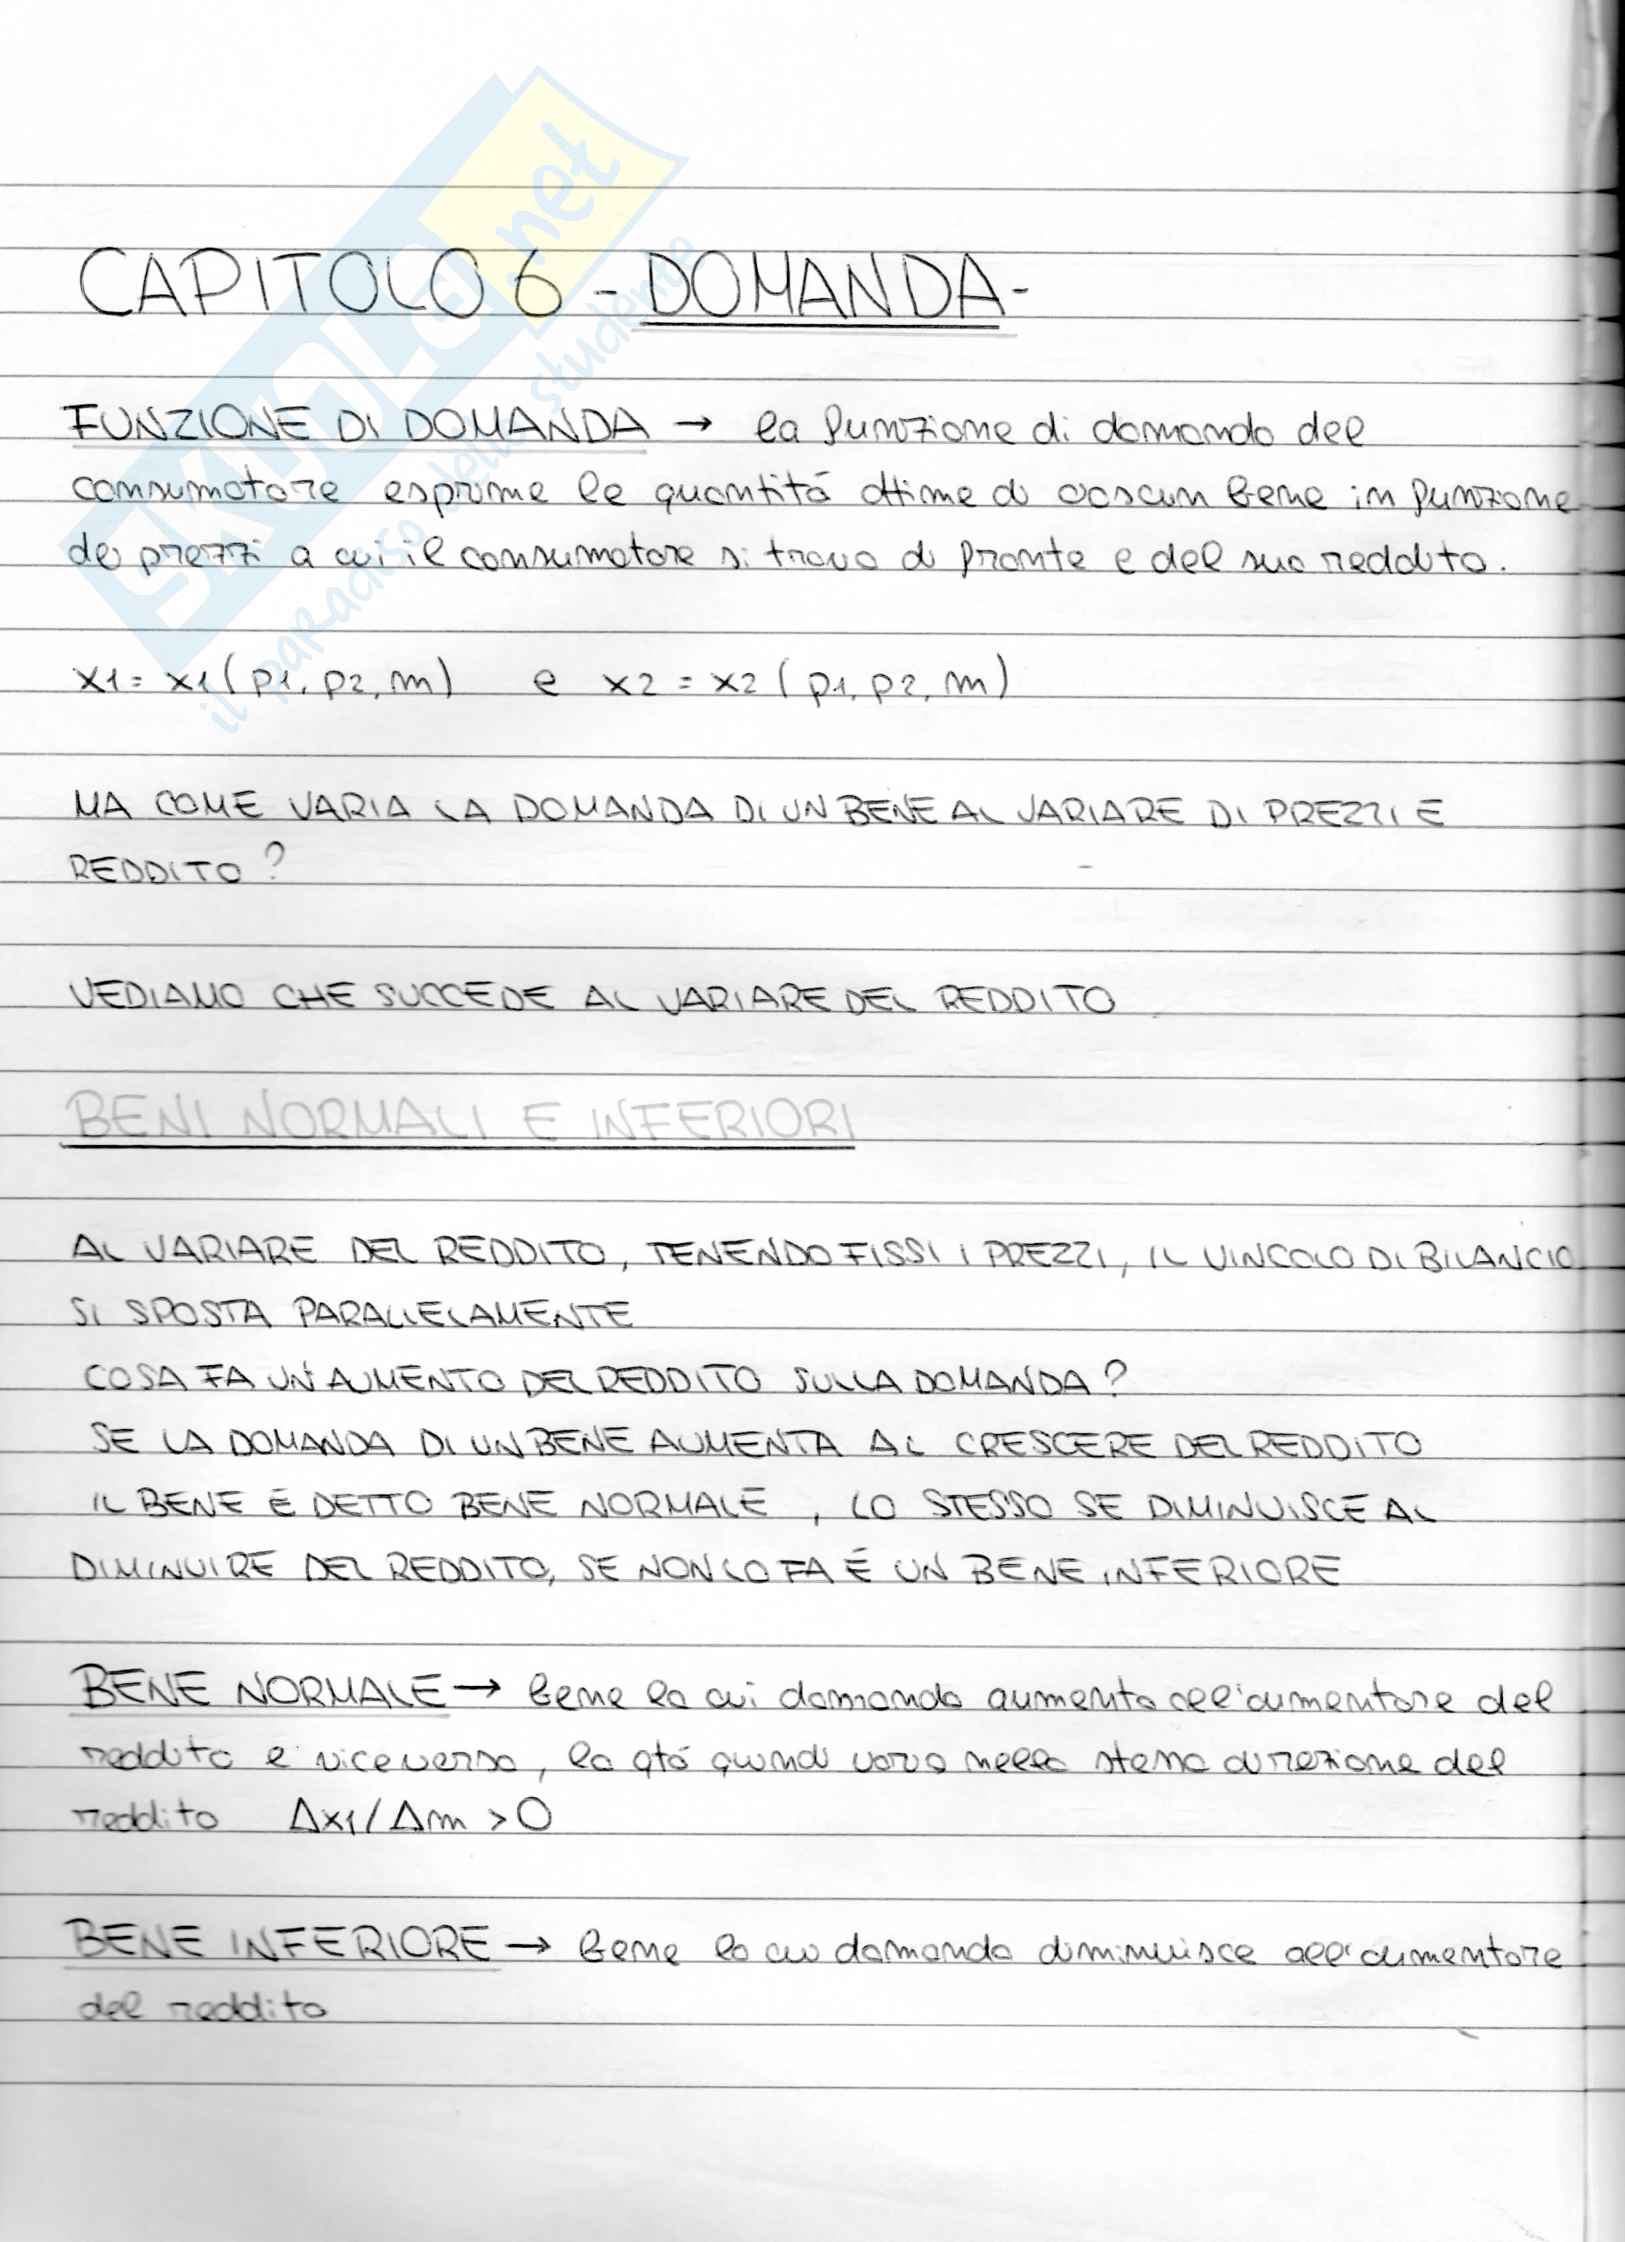 CAPITOLO 6 - DOMANDA -
FUNZIONE DI DOMANDA → la funzione di domanda del
consumatore esprime le quantitá ottime di ciascun bene in funzione
dei prezzi a cui il consumatore si trova di fronte e del suo reddito.
x1 = x1 ( p1, p2, m )   e   x2 = x2 ( p1, p2, m )
MA COME VARIA LA DOMANDA DI UN BENE AL VARIARE DI PREZZI E
REDDITO ?
VEDIAMO CHE SUCCEDE AL VARIARE DEL REDDITO
BENI NORMALI E INFERIORI
AL VARIARE DEL REDDITO, TENENDO FISSI I PREZZI, IL VINCOLO DI BILANCIO
SI SPOSTA PARALLELAMENTE
COSA FA UN'AUMENTO DEL REDDITO SULLA DOMANDA ?
SE LA DOMANDA DI UN BENE AUMENTA AL CRESCERE DEL REDDITO
IL BENE É DETTO BENE NORMALE , LO STESSO SE DIMINUISCE AL
DIMINUIRE DEL REDDITO, SE NON LO FA É UN BENE INFERIORE
BENE NORMALE → bene la cui domanda aumenta all'aumentare del
reddito e viceversa, la qtá quindi varia nella stessa direzione del
reddito   Δx1 / Δm > 0
BENE INFERIORE → bene la cui domanda diminuisce all'aumentare
del reddito
SKUOLA.net
il paradiso dello studente